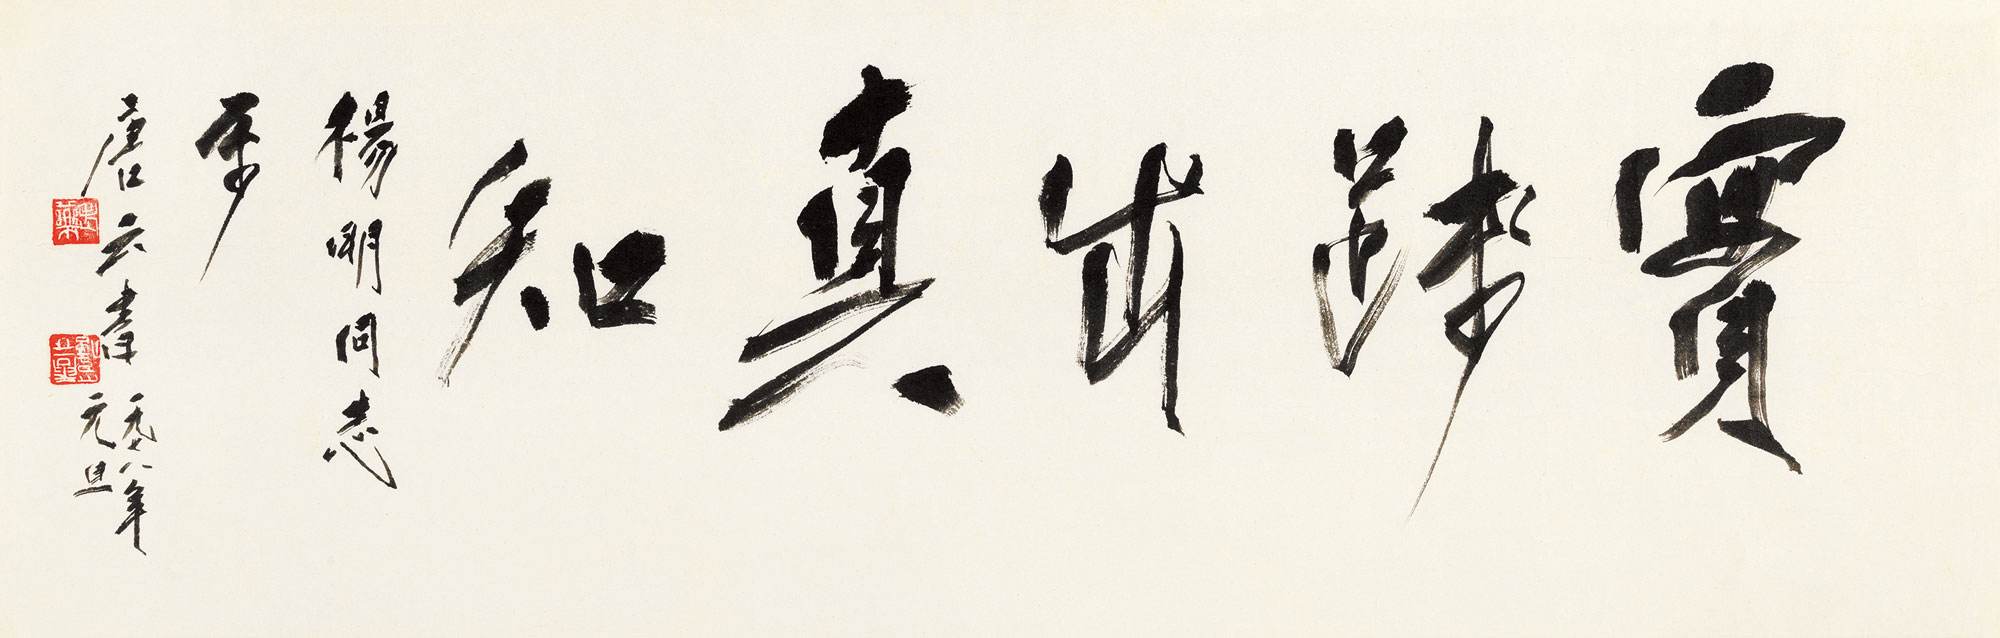 實踐出真知
楊明同志
唐云書 一九七八年
元旦